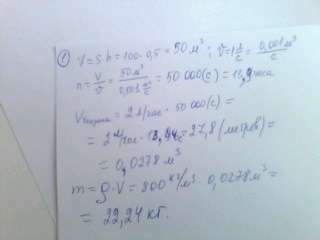 ① V = S h = 100 · 0,5 = 50 м³ ; v = 1 л/с = 0,001 м³/с
n = V/v = 50 м³ / 0,001 м³/с = 50 000 (с) = 13,9 часа
V = 2 л/час · 50 000 (с) =
= 2 л/час · 13,9 ч = 27,8 (литров) =
= 0,0278 м³
m = ρ · V = 800 кг/м³ · 0,0278 м³ =
= 22,24 кг.